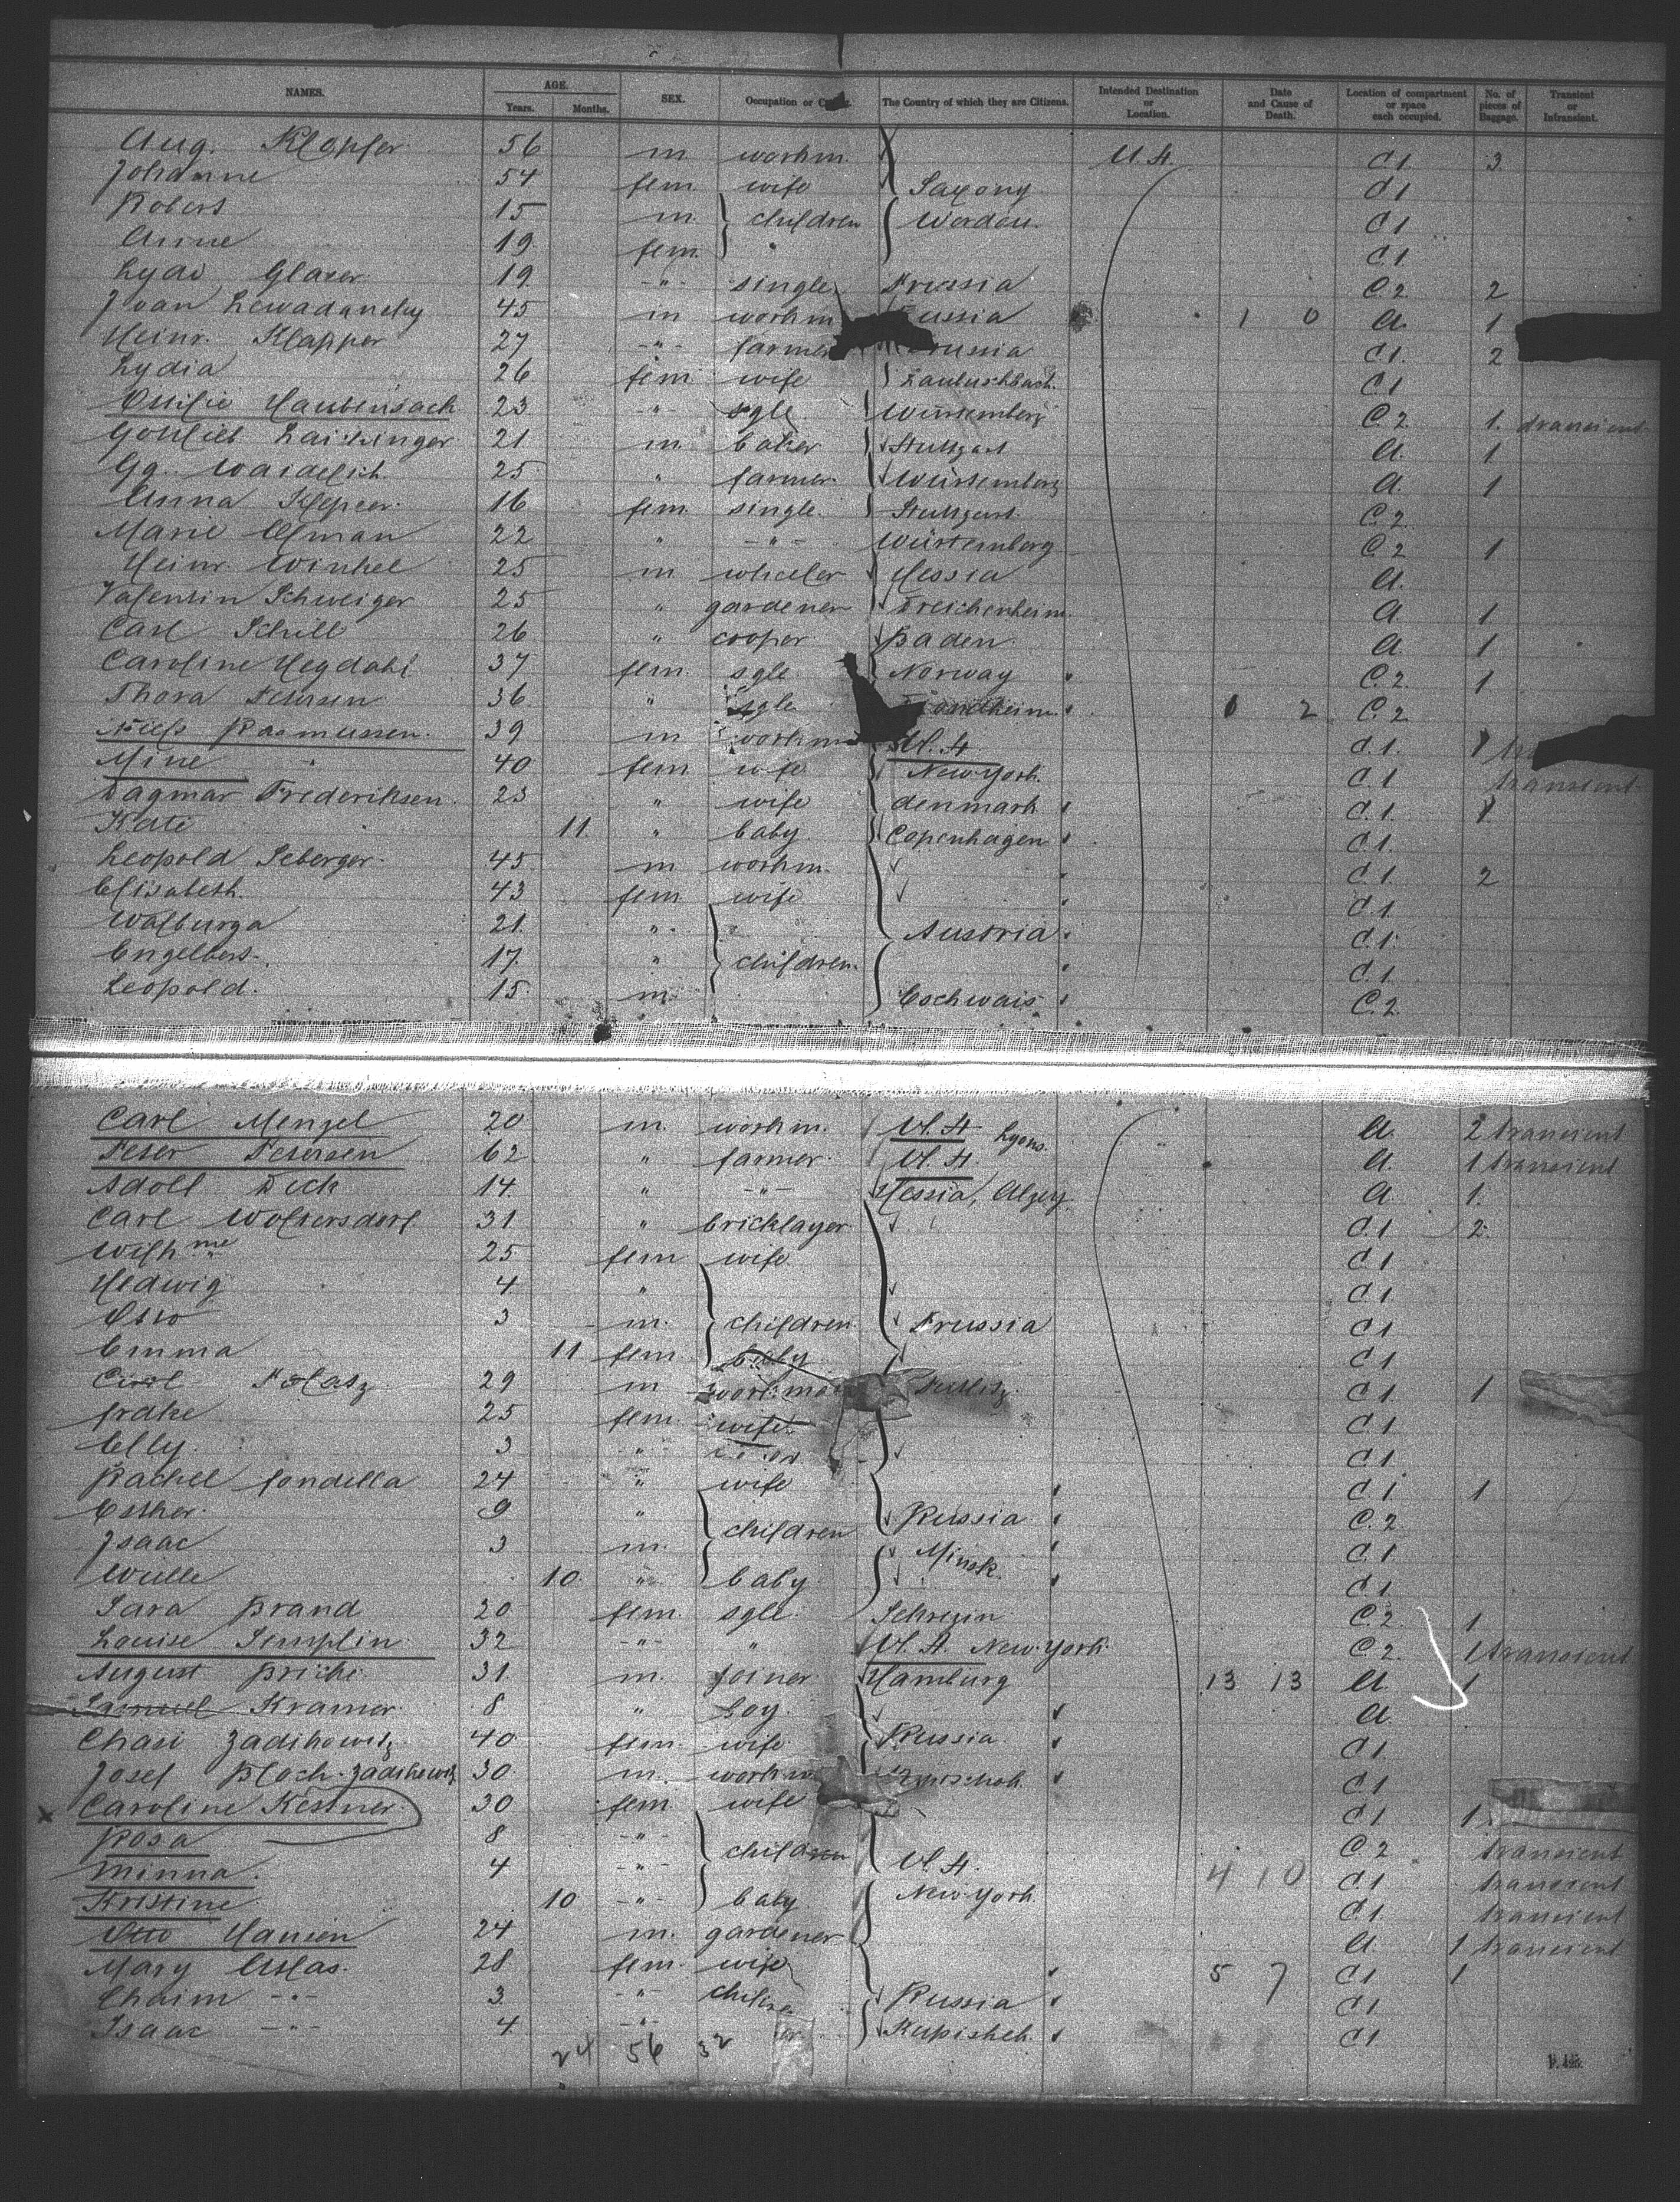 NAMES. AGE. SEX. Occupation or The Country of which they are Citizens. Intended Destination or Location. Date and Cause of Death. Location of compartment or space each occupied. No. of pieces of Baggage. Transient or Intransient.
Years. Months.
Aug. Klopfer 56 m. workm. U.S. C.1 3.
Johanne 54 fem. wife Saxony C.1
Robert 15 m. children Werdau. C.1
Anne 19. fem. " C.1.
Lydi Glaser 19. -"- single Prussia C.2 2
45 m workm. A. 1
Heinr. Klapper 27 -"- farmer C.1. 2
Lydia 26 fem wife C.1
Ottilie Haubensack 23 -"- sgle Würtemberg C.2 1. transient
Gottlieb Laitzinger 21 m. baker Stuttgart A. 1
Gg. Waidelich 25 " farmer. Würtemberg A. 1
Anna 16 fem. single. Stuttgart. C.2
Marie 22 " -"- Würtemberg C.2 1
Heinr. Winkel 25 m wheeler Hessia A.
Valentin Schweiger 25 " gardener A. 1
Carl Schill 26 " cooper Baden A. 1
Caroline Hegdahl 37 fem. sgle. Norway C.2. 1
Thora Petersen 36 " sgle 2 C.2
Niels Rasmussen. 39 m workm U.S. C.1.
Mine " 40 fem wife New-York. C.1 transient
Dagmar Frederiksen. 23 " wife denmark C.1 1
Kati 11. " baby Copenhagen C.1.
Leopold Seberger. 45 m workm. C.1. 2
Elisabeth. 43 fem. wife C.1
Walburga 21. " Austria C.1.
Engelbert 17. " children. C.1.
Leopold. 15. m. C.2.
Carl Menzel 20 m. workm. U.S. Lyons. A. 2 transient
Peter Petersen 62 " farmer. U.S. A. 1 transient
Adolf Dick 14. " -"- Hessia, Alzey. A. 1.
Carl Woltersdorf 31. " bricklayer C.1. 2.
Wilhme 25 fem wife. C.1
Hedwig 4 " C.1.
Otto 3 m. children. Prussia C.1
Emma 11 fem. baby C.1
29 m workman C.1 1
25 fem. wife. C.1
Elly. 3 " C.1.
Rachel 24 " wife C.1 1
Esther. 9 " children Russia C.2
Isaac 3 m. Minsk. C.1
10. " baby. C.1
Sara Brand 20 fem. sgle. C.2. 1
Louise Templin. 32 -"- " U.S. New-York. C.2. 1 transient
August 31. m. joiner Hamburg 13 13 A. 1
Samuel Kramer. 8 " boy. A.
Chasi Zadikowitz 40 fem. wife. Russia. C.1.
Josef Bloch-Zadikowitz 30 m. workm. C.1
Caroline Kestner. 30 fem. wife C.1 1.
Rosa 8 -"- children C.2 transient
Minna. 4 -"- U.S. 4 10 C.1 transient
Kristine 10 -"- baby New-York. C.1. transient
Otto 24 m. gardener A. 1 transient
Mary 28 fem. wife 5 7 C.1 1
Chaim -"- 3. -"- children Russia C.1
Isaac -"- 4. -"- C.1
24 56 32